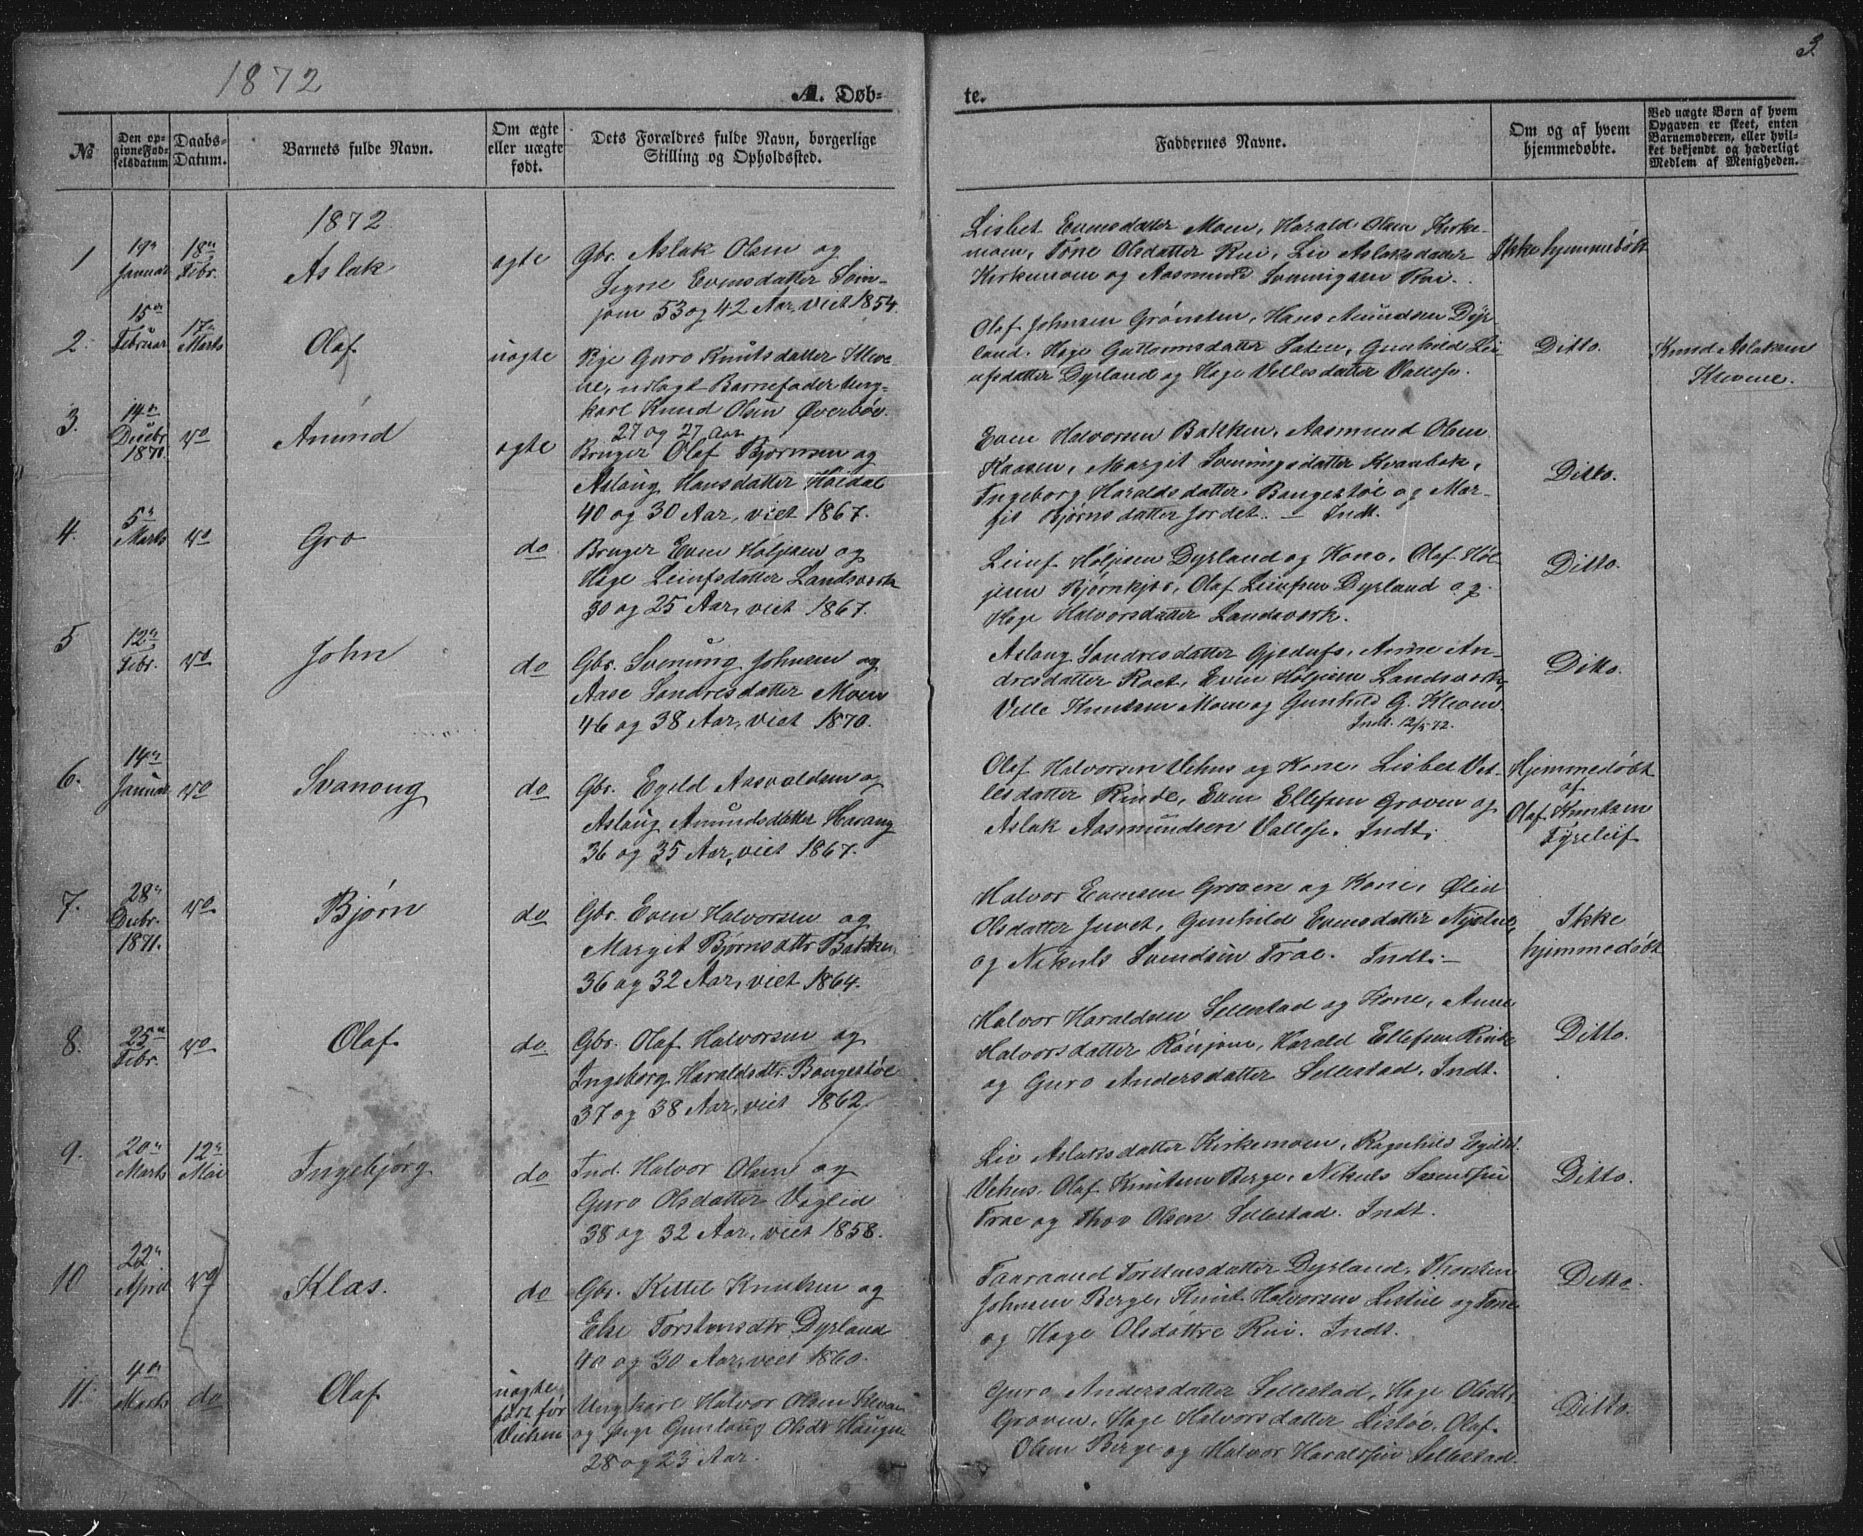 3.
1872
A. Døb-
te.
№
Den op-
givne Fød-
selsdatum
Daabs-
Datum.
Barnets fulde Navn.
Om ægte
eller uægte
født.
Dets Forældres fulde Navn, borgerlige
Stilling og Opholdssted.
Faddernes Navne.
Om og af hvem
hjemmedøbte.
Ved uægte Børn af hvem
Opgaven er skeet, enten
Barnemoderen, eller hvil-
ket bekjendt og hæderligt
Medlem af Menigheden.
1872
1
Januar
18de
Febr.
Aslak
ægte
Gbr. Aslak Olsen og
Signe Evensdatter
53 og 42 Aar, viet 1854.
Lisbet Evensdatter Moen, Harald Olsen Kirke-
moen, Tone Olsdatter Rui, Liv Aslaksdatter
Kirkemoen og Aasmund Sveinungsen Rui.
Ikke hjemmedøbt
2.
15de
Februar
17de
Marts
Olaf
uægte
Pige Guro Knutsdatter Kleve-
ne, udlagt Barnefader Ung-
karl Knud Olsen Øverbøe.
27 og 27 Aar
Olaf Johnsen Grønsten, Hans Amundsen Dyr-
land. Hæge Guttormsdatter, Gunhild Lei-
ufsdatter Dyrland og Hæge Vetlesdatter
Ditto.
Knud Aslaksen
Klevene.
3.
14de
Decbr.
1871.
do
Amund
ægte
Bruger Olaf Bjørnsen og
Aslaug Hansdatter Høidal
40 og 30 Aar, viet 1867.
Even Halvorsen Bakken, Aasmund Olsen
Kaasen, Margit Sveinungsdatter Kvambæk,
Ingeborg Haraldsdatter Baugestøe og Mar-
git Bjørnsdatter Jordet. — Indt.
Ditto.
4.
5de
Marts
do
Gro
do
Bruger Even Høljesen og
Hæge Leiufsdatter Landsverk
30 og 25 Aar, viet 1867.
Leiuf Høljesen Dyrland og Kone, Olaf Høl-
jesen Bjørnkjær, Olaf Leiufsen Dyrland og
Hæge Halvorsdatter Landsverk.
Ditto.
5
12de
Febr.
do
John
do
Gbr. Sveinung Johnsen og
Aase Sondresdatter Moen
46 og 38 Aar, viet 1870.
Aslaug Sondresdatter Gjedufs, Anne An-
dresdatter, Even Høljesen Landsverk,
Vetle Knutsen Moen og Gunhild G. Kleven.
Indt. 12/5 72.
Ditto.
6.
14de
Januar
do
Svanaug
do
Gbr. Egeld Aasvaldsen og
Aslaug Amundsdatter Haraug
36 og 35 Aar, viet 1867.
Olaf Halvorsen Vehus og Kone, Lisbet Vet-
lesdatter Rinde, Even Ellefsen Groven og
Aslak Aasmundsen. Indt.
Hjemmedøbt
af
Olaf Knutsen
Tyreleif
7.
28de
Decbr.
1871.
do
Bjørn
do
Gbr. Even Halvorsen og
Margit Bjørnsdtr Bakken
36 og 32 Aar, viet 1864.
Halvor Evensen Groven og Kone, Ølid
Olsdatter Juvet, Gunhild Evensdatter Nystue,
og Nikuls Svendsen Træe. Indt. —
Ikke
hjemmedøbt
8.
25de
Febr.
do
Olaf
do
Gbr. Olaf Halvorsen og
Ingeborg Haraldsdtr. Baugestøe
37 og 38 Aar, viet 1862.
Halvor Haraldsen Sellestad og Kone, Anne
Halvorsdatter Rønjom, Harald Ellefsen Rinde
og Guro Andersdatter Sellestad. Indt.
Ditto.
9.
20de
Marts
12de
Mai
Ingebjørg
do
Ind. Halvor Olsen og
Guro Olsdatter Veglid
38 og 32 Aar, viet 1858.
Liv Aslaksdatter Kirkemoen, Ragnhild Egildt.
Vehus. Olaf Knutsen Berge, Nikuls Svensen
Træe og Thov Olsen Sellestad. Indt.
Ditto.
10
22de
April
do
Klas.
do
Gbr. Kittel Knutsen og
Else Torstensdtr Dyrland
40 og 30 Aar, viet 1860.
Taaraand Torstensdatter Dyrland, Thorsten
Johnsen Berge, Knut Halvorsen Listul og Tone
og Hæge Olsdøttre Rui. Indt.
Ditto.
11.
4de
Marts
do
Olaf
uægte,
født før
Vielsen
Ungkarl Halvor Olsen
og Pige Gunlaug Olsdt Haugen
28 og 23 Aar.
Guro Andersdatter Sellestad, Hæge Olsdt.
Groven, Hæge Halvorsdatter Listøe, Olaf
Olsen Berge og Halvor Haraldsen Sellestad.
Ditto.